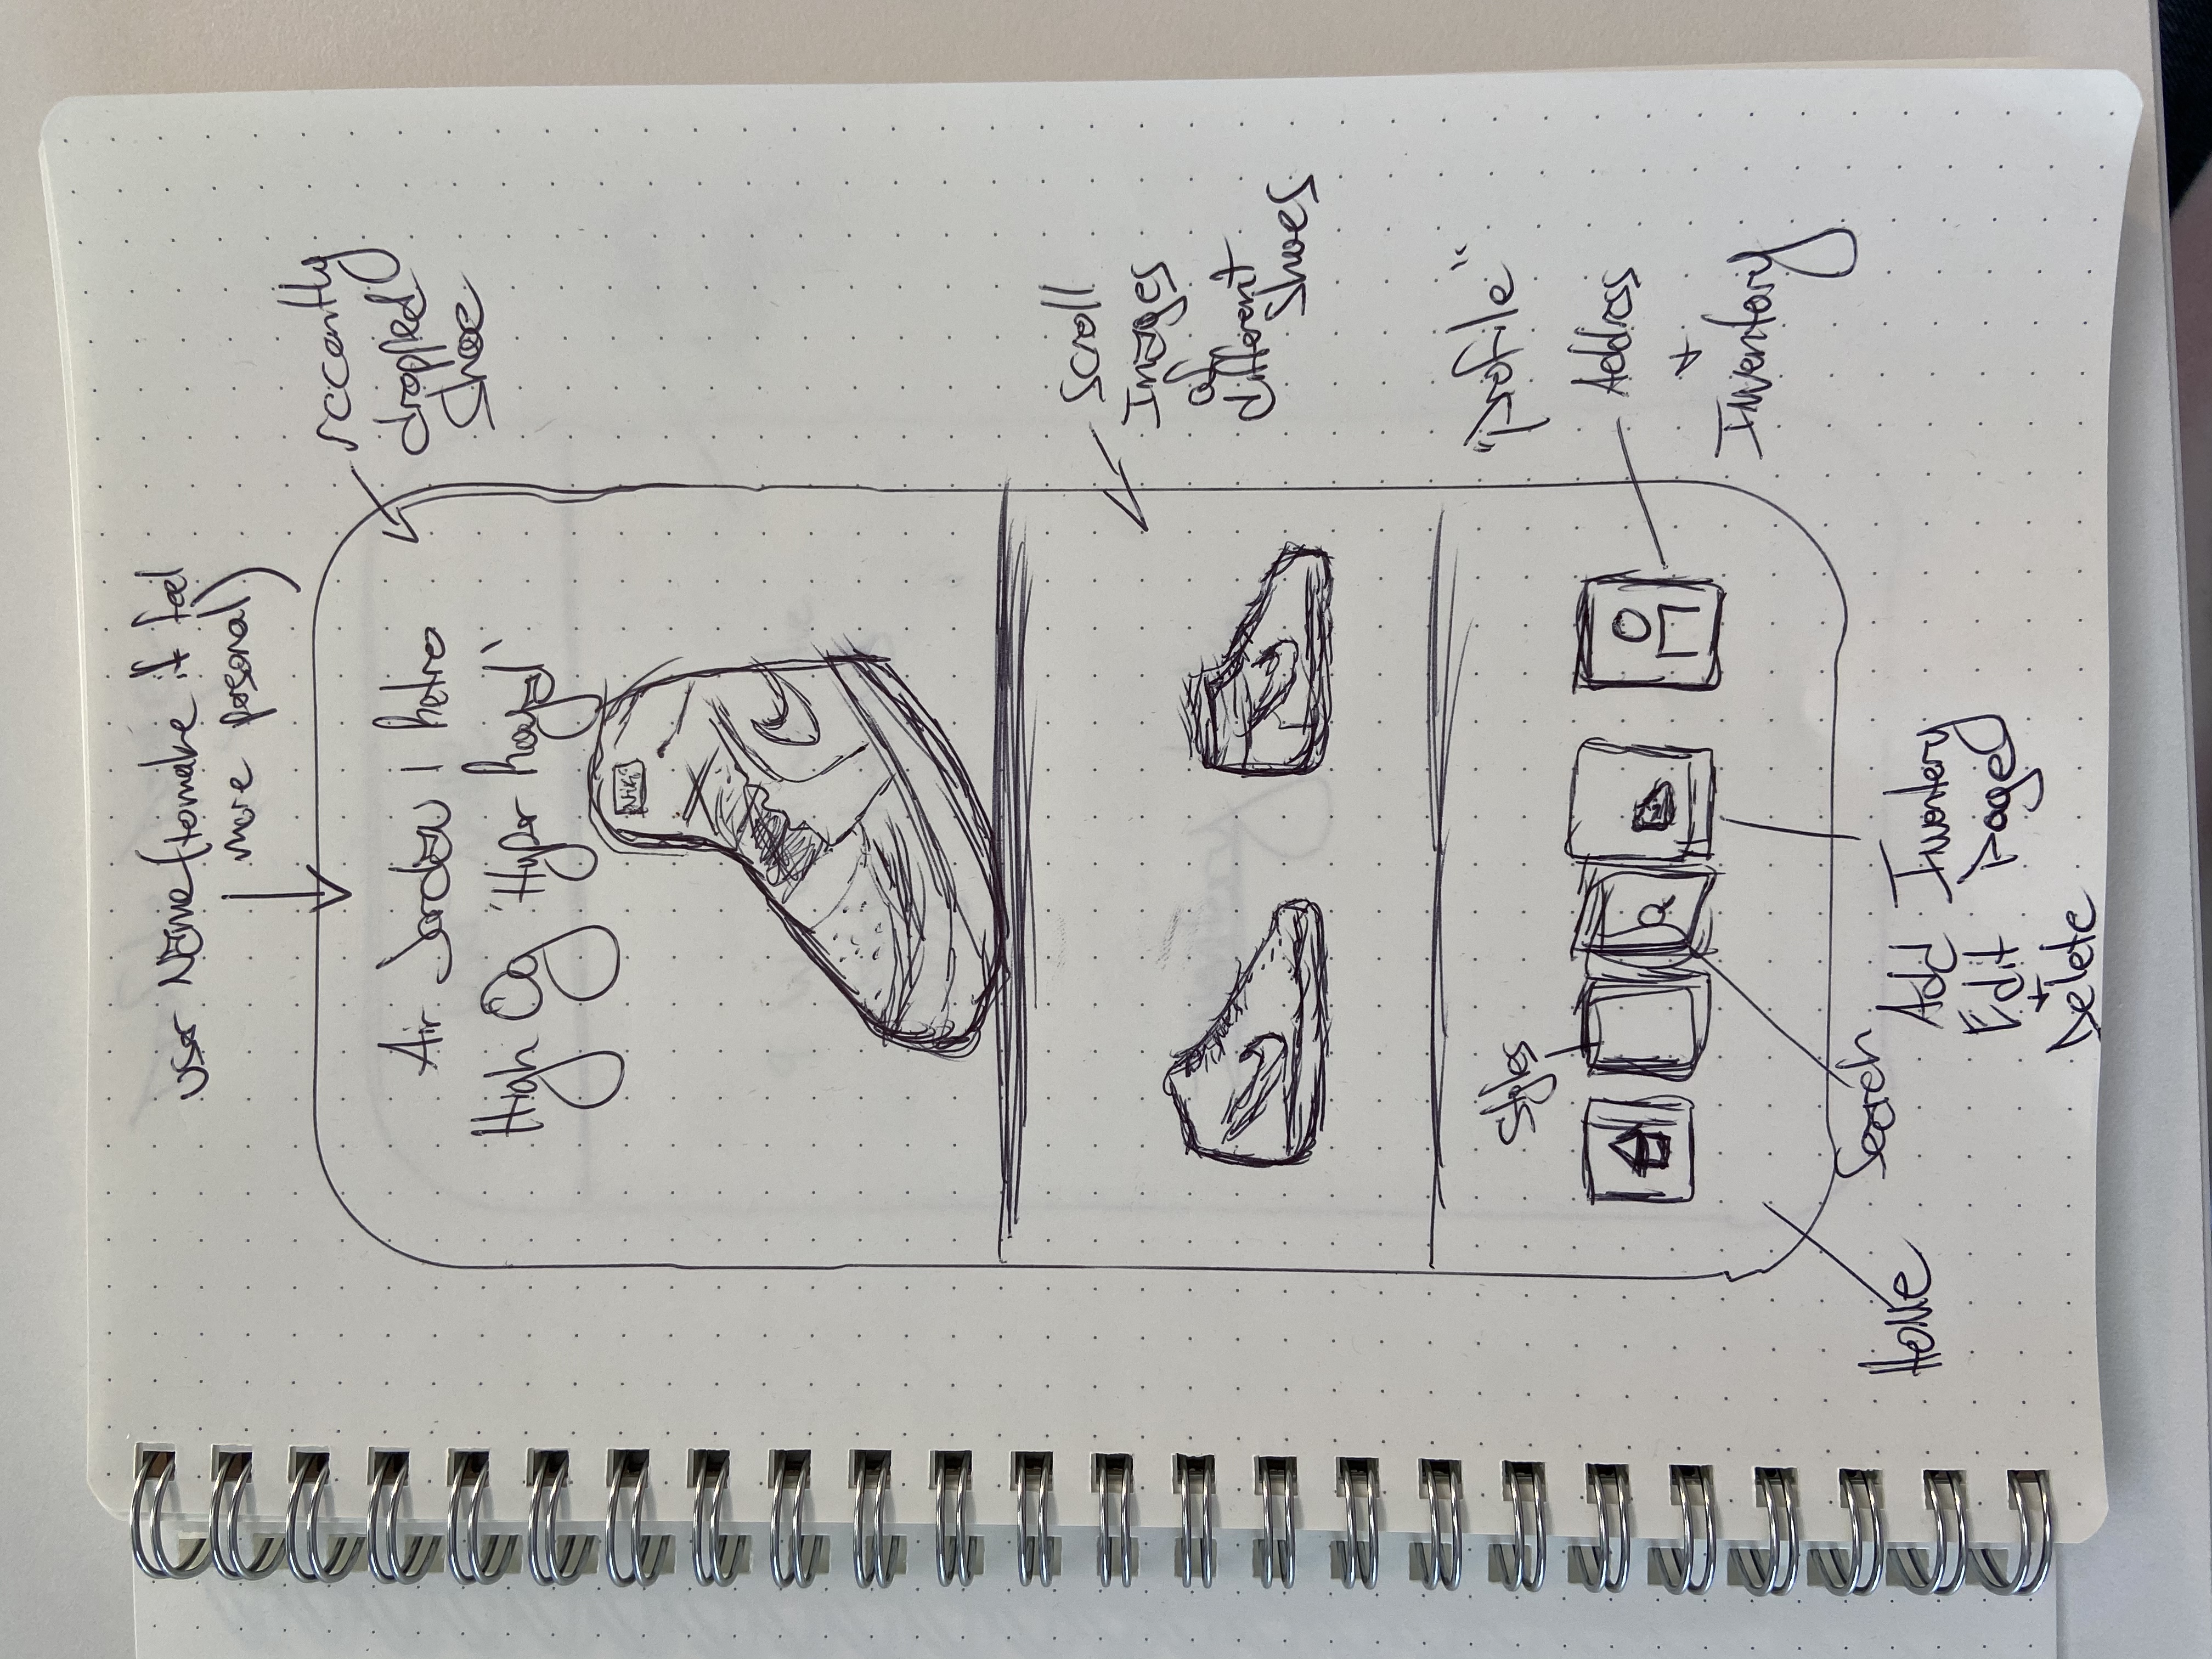 user Name (to make it feel
more personal)
recently
dropped
shoe
Air Jordan 1 Retro
High Og 'Hyper Royal'
Nike
Scroll
Images
of
different
shoes
Styles
"profile"
Address
+
Inventory
Home
Search
Add Inventory
Edit Page
+
Delete